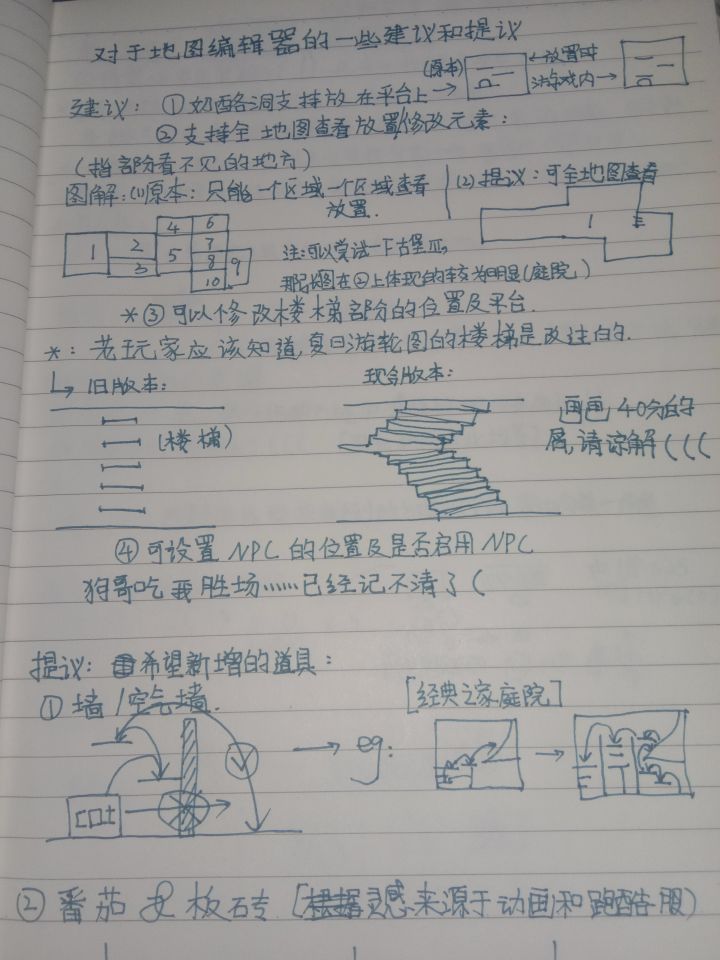 对于地图编辑器的一些建议和提议
建议：①奶酪洞支持放在平台上→
(原本)
←放置时
游戏内→
②支持全地图查看放置/修改元素：
(指部分看不见的地方)
图解：(1)原本：只能一个区域一个区域查看
放置.
(2)提议：可全地图查看
1 2 3 4 5 6 7 8 9 10
1
注：可以尝试一下古堡Ⅲ,
那张图在②上体现的较为明显(庭院)
*③可以修改楼梯部分的位置及平台.
*：老玩家应该知道,夏日游轮图的楼梯是改进的.
↳旧版本：
现今版本：
(楼梯)
画画,40分的
屑,请谅解(((
④可设置NPC的位置及是否启用NPC
狗哥吃我胜场……已经记不清了(
提议：希望新增的道具：
①墙/空气墙.
[经典之家庭院]
cat
→eg:
②番茄及板砖 [灵感来源于动画和跑酷服)